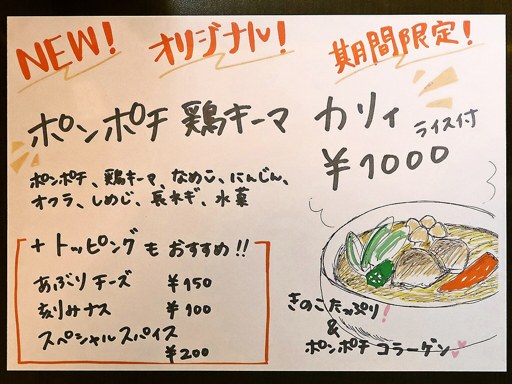 NEW! オリジナル! 期間限定!
ポンポチ 鶏キーマ カリィ ライス付
¥1000
ポンポチ、鶏キーマ、なめこ、にんじん、
オクラ、しめじ、長ネギ、水菜
+トッピングも おすすめ!!
あぶりチーズ ¥150
刻みナス ¥100
スペシャルスパイス
¥200
きのこたっぷり!
&
ポンポチ コラーゲン